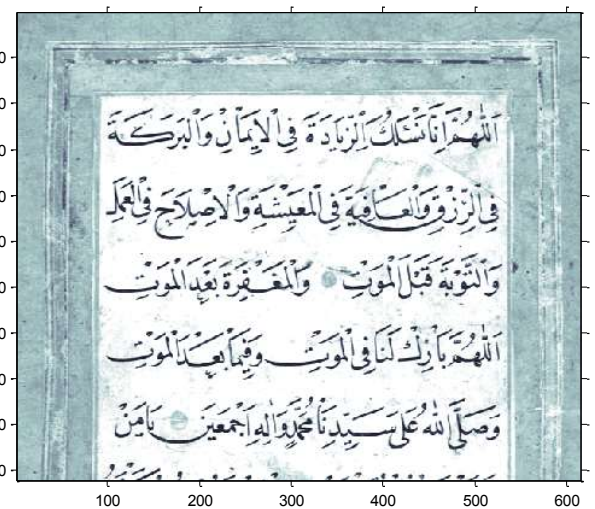 اَللّٰهُمَّ اِنَّا نَسْئَلُكَ الزِّيَادَةَ فِي الْاِيمَانِ وَالْبَرَكَةَ
فِي الرِّزْقِ وَالْعَافِيَةَ فِي الْمَعِيْشَةِ وَالْاِصْلَاحَ فِي الْعَمَلِ
وَالتَّوْبَةَ قَبْلَ الْمَوْتِ وَالْمَغْفِرَةَ بَعْدَ الْمَوْتِ
اَللّٰهُمَّ بَارِكْ لَنَا فِي الْمَوْتِ وَفِيمَا بَعْدَ الْمَوْتِ
وَصَلَّى اللّٰهُ عَلٰى سَيِّدِنَا مُحَمَّدٍ وَاٰلِهِ اَجْمَعِينَ يَا مَنْ
100 200 300 400 500 600